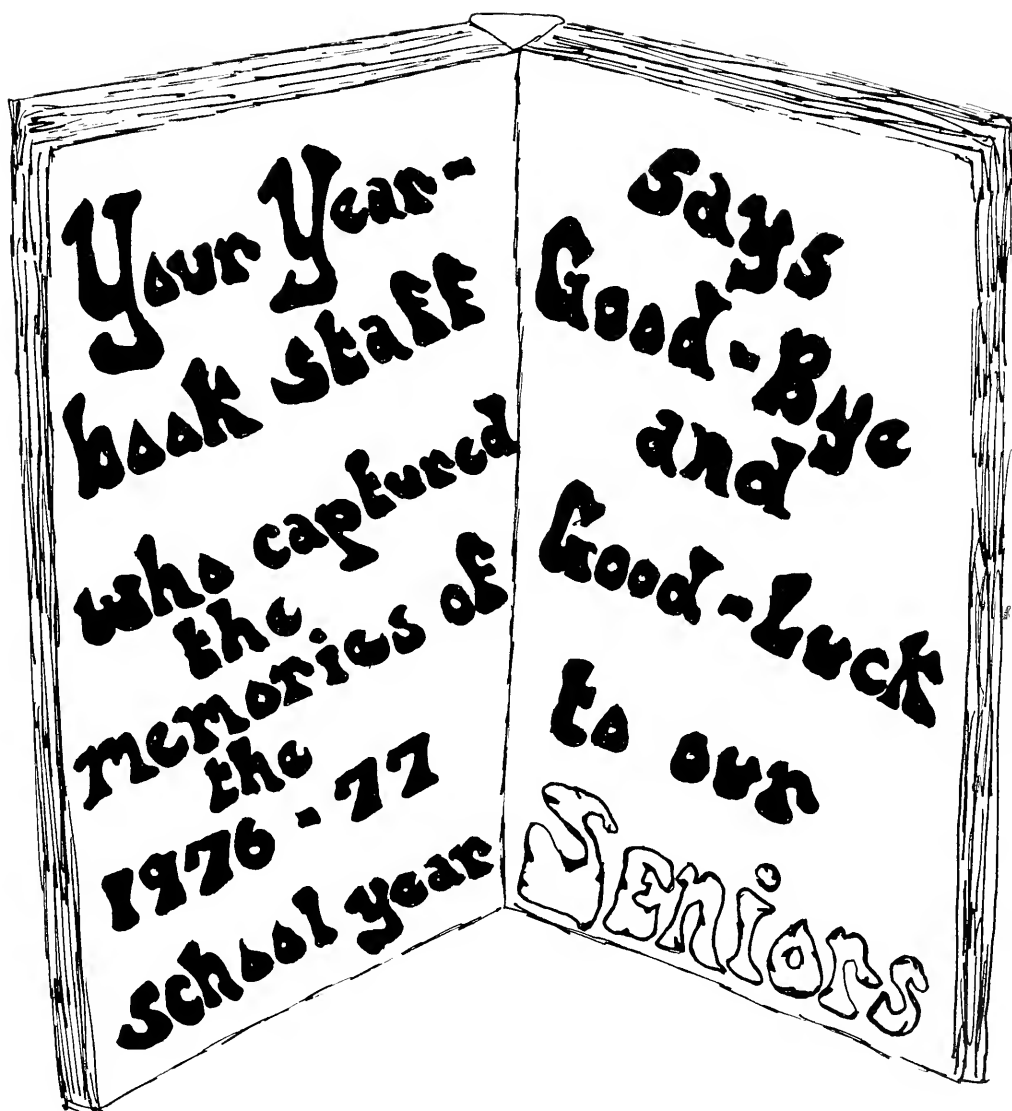 Your Year-
book staff
who captured
the
memories of
the
1976-77
school year
says
Good-Bye
and
Good-Luck
to our
Seniors